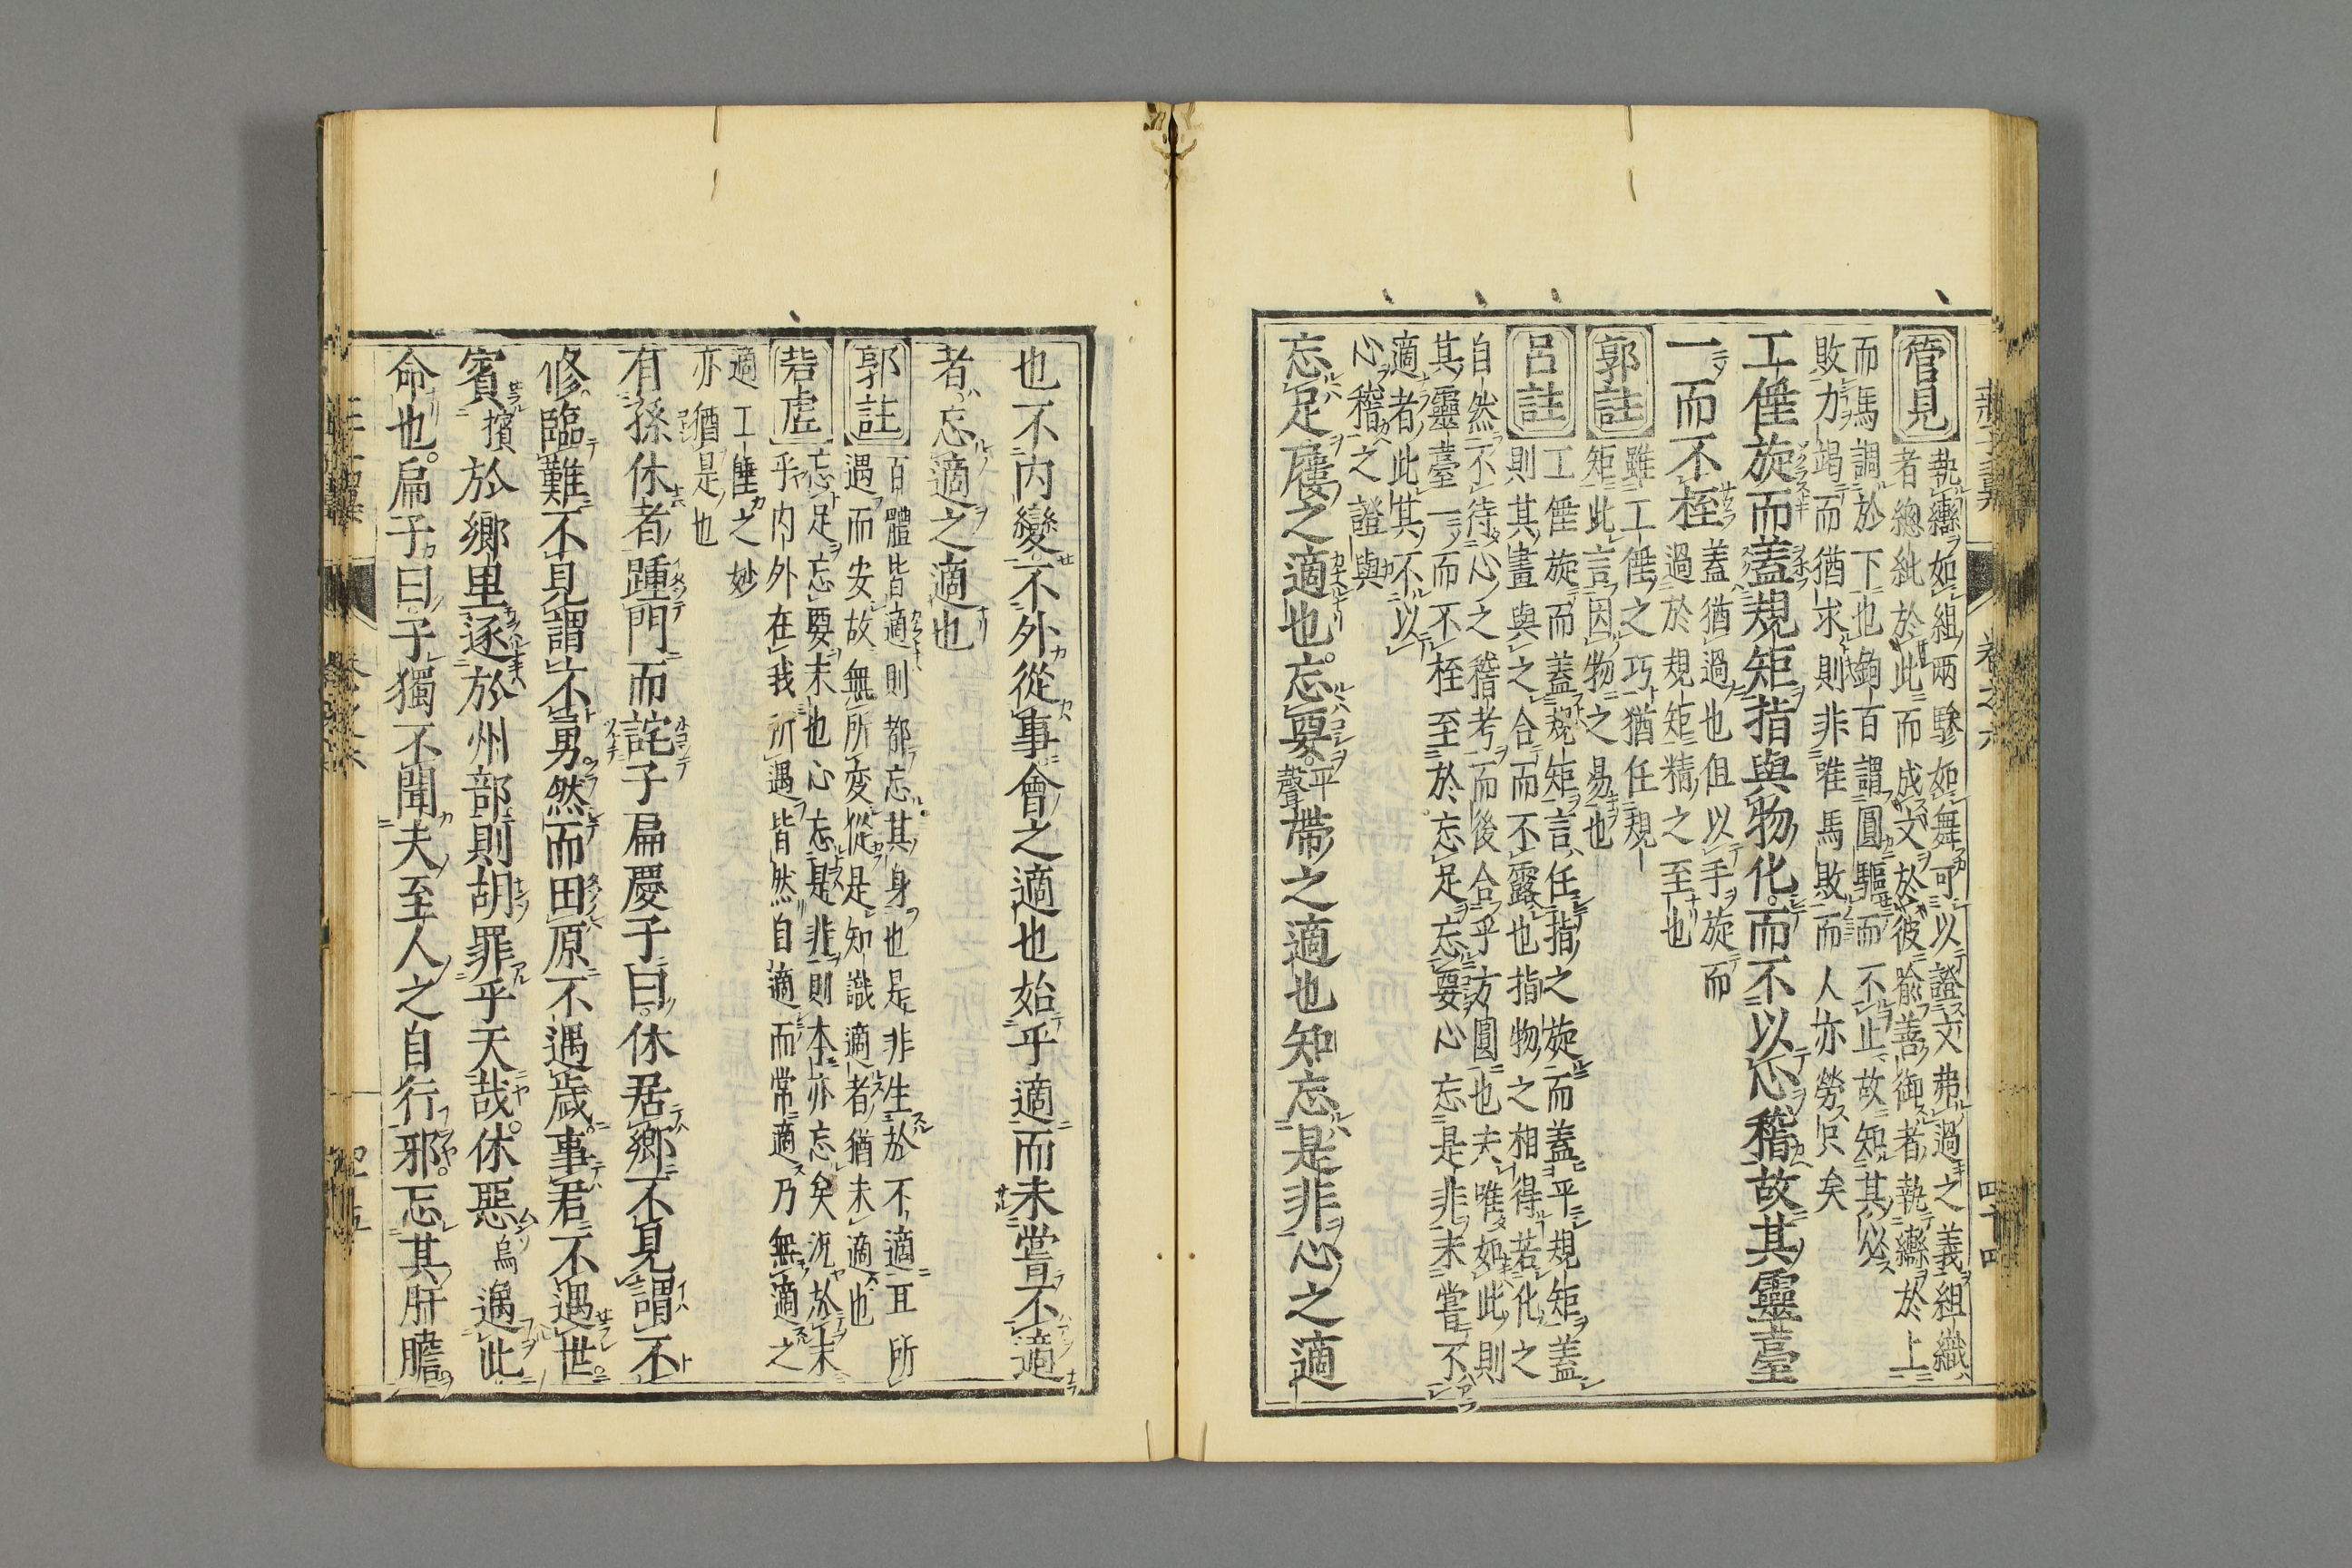 管見
執轡如組兩驂如舞可以證文弗過之義組織
者總紕於此而成文於彼喩善御者執轡於上
而馬調於下也鉤百謂圓驅而不止故知其必
敗力竭而猶求則非唯馬敗而人亦勞矣
工倕旋而蓋規矩指與物化而不以心稽故其靈臺
一而不桎
蓋猶過也但以手旋而
過於規矩精之至也
郭註
雖工倕之巧猶任規
矩此言因物之易也
呂註
工倕旋而蓋規矩言任指之旋而蓋乎規矩蓋
則其畫與之合而不露也指物之相得若化之
自然不待心之稽考而後合乎方圓也夫唯如此則
其靈臺一而不桎至於忘足忘要心忘是非未嘗不
適者此其不以
心稽之證與
忘足屨之適也忘要平聲帶之適也知忘是非心之適
卷之六
四十四
也不內變不外從事會之適也始乎適而未嘗不適
者忘適之適也
郭註
百體皆適則都忘其身也是非生於不適耳所
遇而安故無所変從是知識適者猶未適也
砦虗
忘足忘要末也心忘是非則本亦忘矣況於末
乎內外在我所遇皆然自適而常適乃無適之
適工倕之妙
亦猶是也
有孫休者踵門而詫子扁慶子曰休居鄉不見謂不
修臨難不見謂不勇然而田原不遇歲事君不遇世
賓擯於鄉里逐於州部則胡罪乎天哉休惡烏遇此
命也扁子曰子獨不聞夫至人之自行邪忘其肝膽